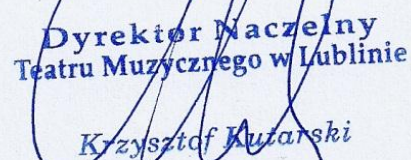 Dyrektor Naczelny
Teatru Muzycznego w Lublinie
Krzysztof Kutarski